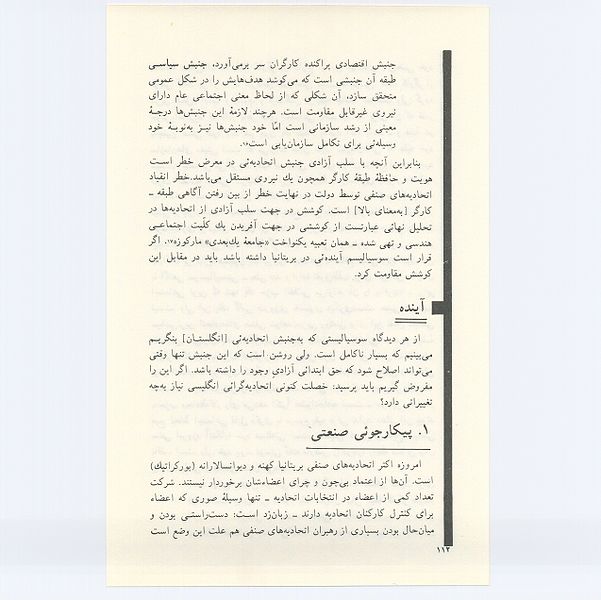 جنبش اقتصادی پراکنده کارگران سر برمی‌آورد، جنبش سیاسی
طبقه آن جنبشی است که می‌کوشد هدف‌هایش را در شکل عمومی
متحقق سازد، آن شکلی که از لحاظ معنی اجتماعی عام دارای
نیروی غیرقابل مقاومت است. هرچند لازمهٔ این جنبش‌ها درجهٔ
معینی از رشد سازمانی است امّا خود جنبش‌ها نیز به‌نوبهٔ خود
وسیله‌ئی برای تکامل سازمان‌یابی است
بنابراین آنچه با سلب آزادی جنبش اتحادیه‌ئی در معرض خطر است
هویت و حافظهٔ طبقهٔ کارگر همچون یك نیروی مستقل می‌باشد. خطر انقیاد
اتحادیه‌های صنفی توسط دولت در نهایت خطر از بین رفتن آگاهی طبقه ــ
کارگر [به‌معنای بالا] است. کوشش در جهت سلب آزادی از اتحادیه‌ها در
تحلیل نهائی عبارتست از کوششی در جهت آفریدن یك کلّیت اجتماعی
هندسی و تهی شده ــ همان تعبیه یکنواخت «جامعهٔ یك‌بعدی» مارکوزه۱۷. اگر
قرار است سوسیالیسم آینده‌ئی در بریتانیا داشته باشد باید در مقابل این
کوشش مقاومت کرد.
آینده
از هر دیدگاه سوسیالیستی که به‌جنبش اتحادیه‌ئی [انگلستان] بنگریم
می‌بینیم که بسیار ناکامل است. ولی روشن است که این جنبش تنها وقتی
می‌تواند اصلاح شود که حق ابتدائی آزادیِ وجود را داشته باشد. اگر این را
مفروض گیریم باید پرسید: خصلت کنونی اتحادیه‌گرائی انگلیسی نیاز به‌چه
تغییراتی دارد؟
۱. پیکارجوئی صنعتی
امروزه اکثر اتحادیه‌های صنفی بریتانیا کهنه و دیوانسالارانه (بورکراتیك)
است. آن‌ها از اعتماد بی‌چون و چرای اعضاءشان برخوردار نیستند. شرکت
تعداد کمی از اعضاء در انتخابات اتحادیه ــ تنها وسیلهٔ صوری که اعضاء
برای کنترل کارکنان اتحادیه دارند ــ زبان‌زد است: دست‌راستی بودن و
میان‌حال بودن بسیاری از رهبران اتحادیه‌های صنفی هم علت این وضع است
۱۱۳